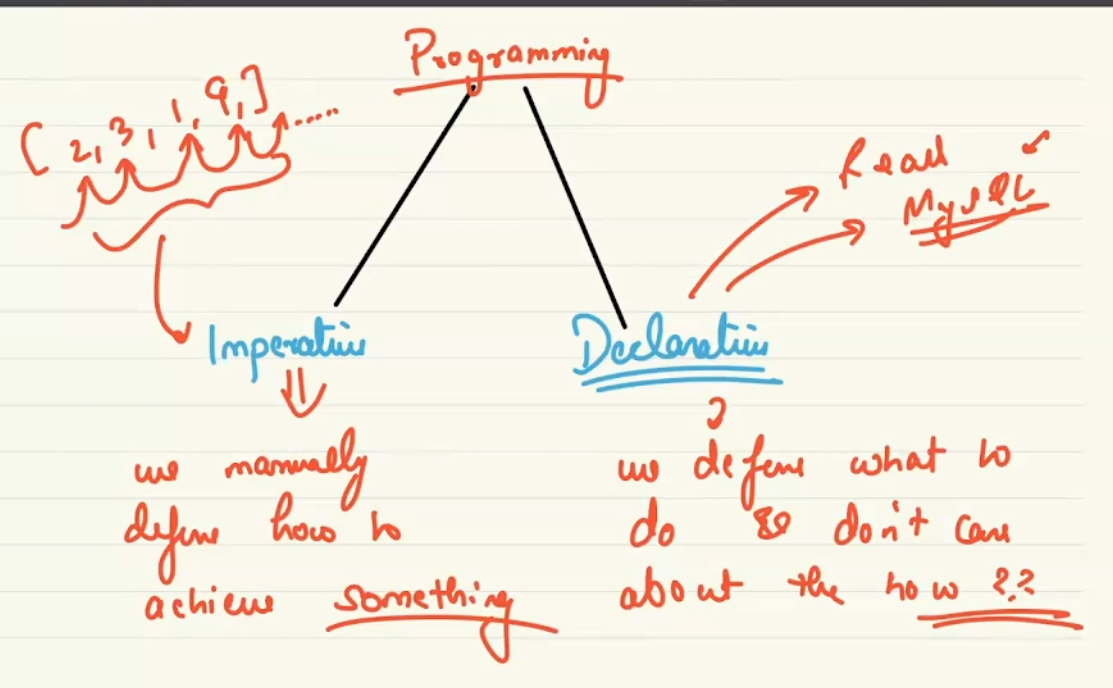 Programming
[ 2, 3, 1, 9, ] .....
React
MySQL
Imperative
Declarative
we manually
define how to
achieve something
we define what to
do & don't care
about the how ??